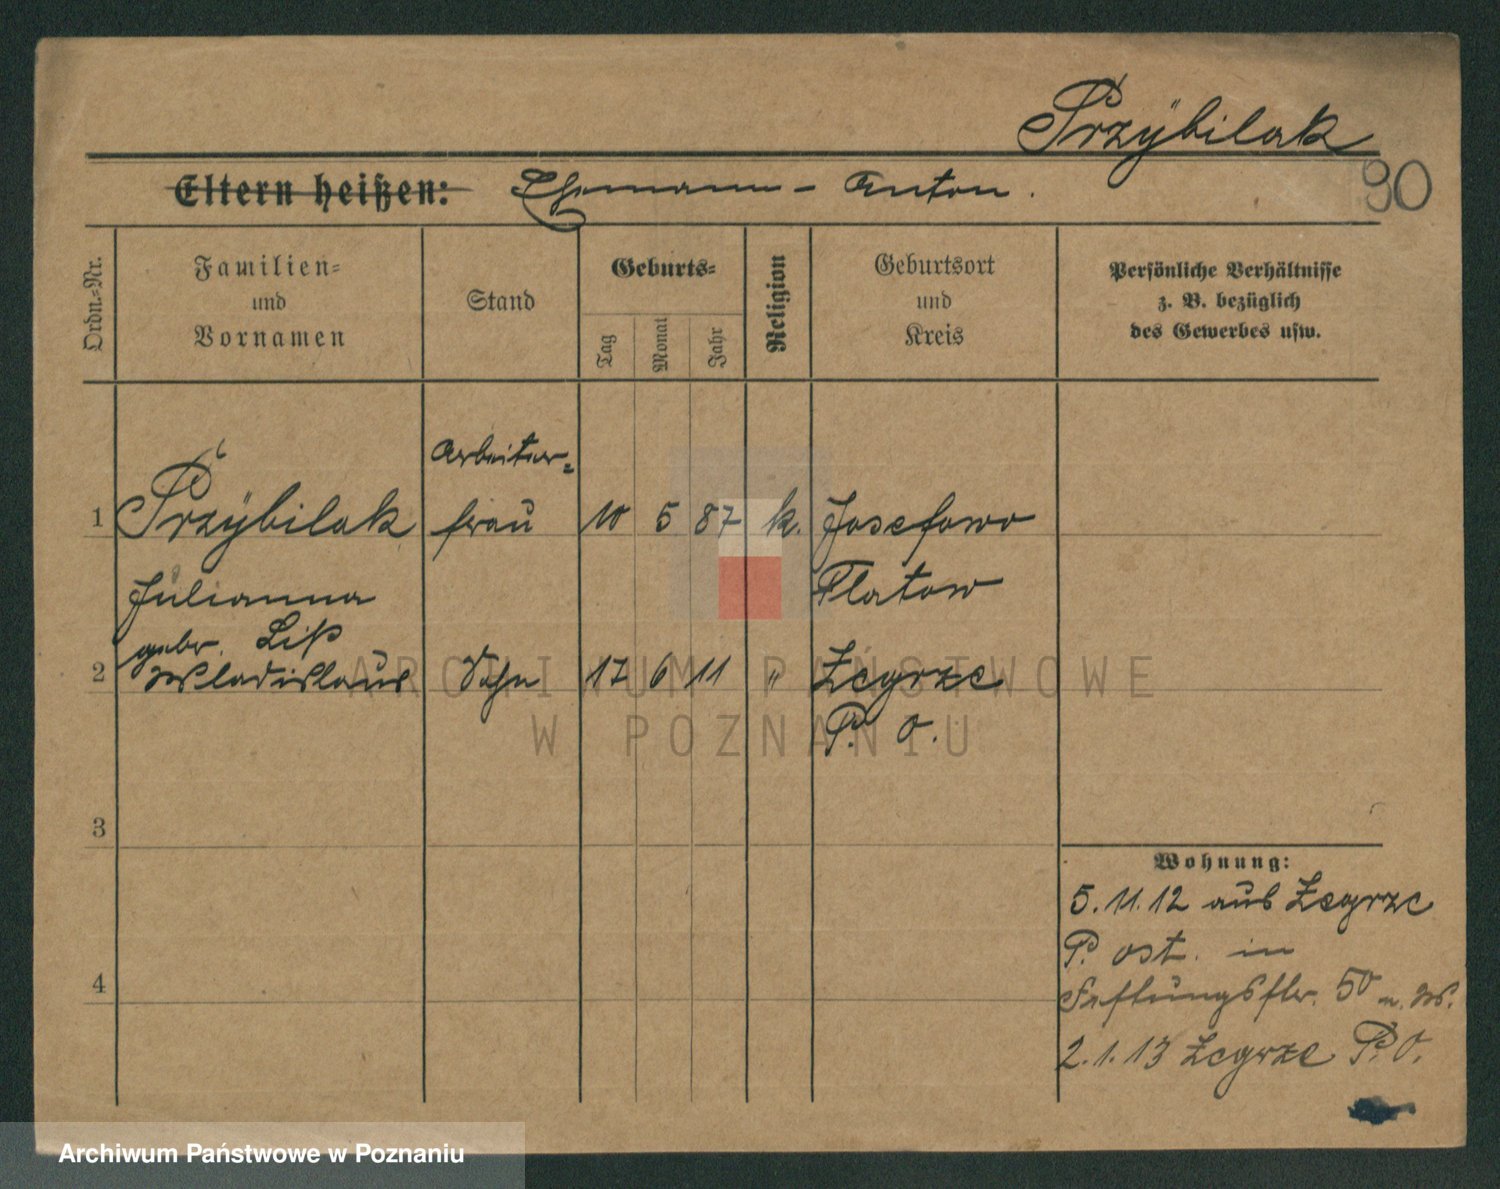 Przÿbilak
90
Eltern heißen: Ehemann - Anton.
Ordn.-Nr.
Familien-
und
Vornamen
Stand
Geburts-
Tag
Monat
Jahr
Religion
Geburtsort
und
Kreis
Persönliche Verhältnisse
z. B. bezüglich
des Gewerbes usw.
Arbeiter-
1 Przÿbilak frau 10 5 87 k. Josefowo
Julianna Flatow
gebr. Liß
2 Wladislaus Sohn 17 6 11 " Zegrze
P. O.
3
4
Wohnung:
5.11.12 aus Zegrze
P. ost. in
50
2.1.13 Zegrze P.O.
ARCHIWUM PAŃSTWOWE
W POZNANIU
Archiwum Państwowe w Poznaniu